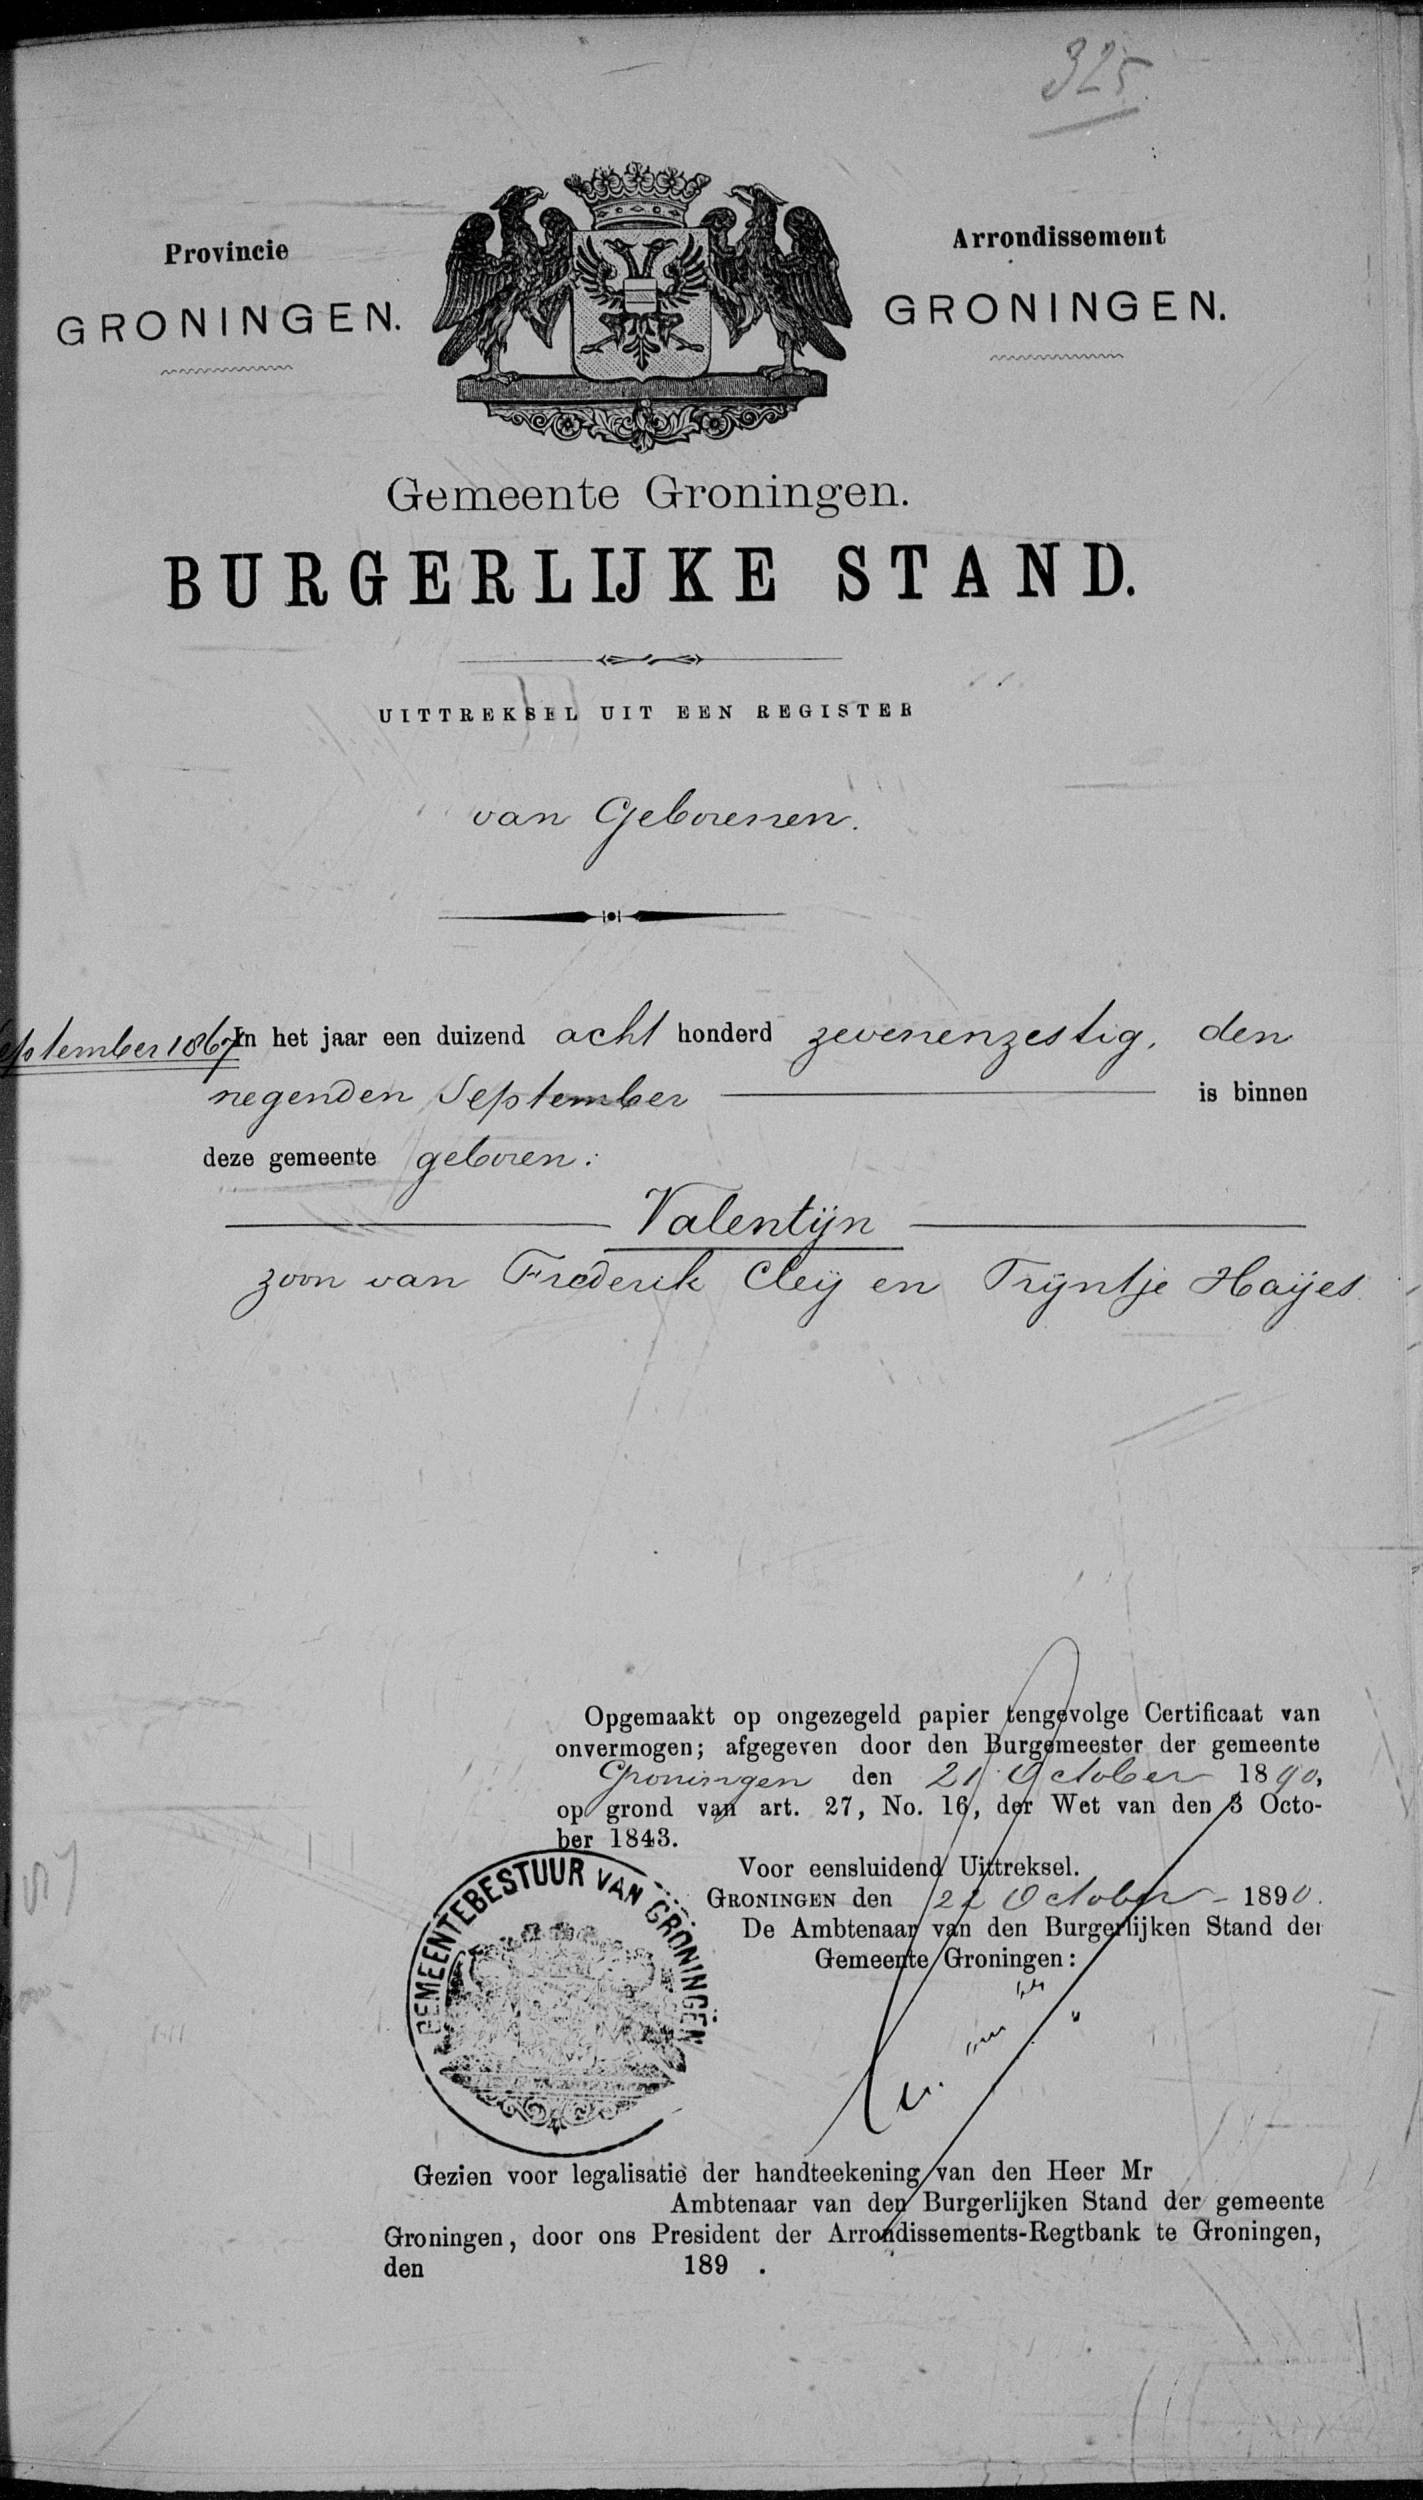 325
Provincie
GRONINGEN.
Arrondissement
GRONINGEN.
Gemeente Groningen.
BURGERLIJKE STAND.
UITTREKSEL UIT EEN REGISTER
van Geborenen.
September 1867
In het jaar een duizend acht honderd zevenenzestig, den
negenden September is binnen
deze gemeente geboren:
Valentijn
zoon van Frederik Cleij en Trijntje Haijes
Opgemaakt op ongezegeld papier tengevolge Certificaat van
onvermogen; afgegeven door den Burgemeester der gemeente
Groningen den 21 October 1890,
op grond van art. 27, No. 16, der Wet van den 3 Octo-
ber 1843.
Voor eensluidend Uittreksel.
GRONINGEN den 22 October 1890.
De Ambtenaar van den Burgerlijken Stand der
Gemeente Groningen:
GEMEENTEBESTUUR VAN GRONINGEN
Gezien voor legalisatie der handteekening van den Heer Mr
Ambtenaar van den Burgerlijken Stand der gemeente
Groningen, door ons President der Arrondissements-Regtbank te Groningen,
den 189 .